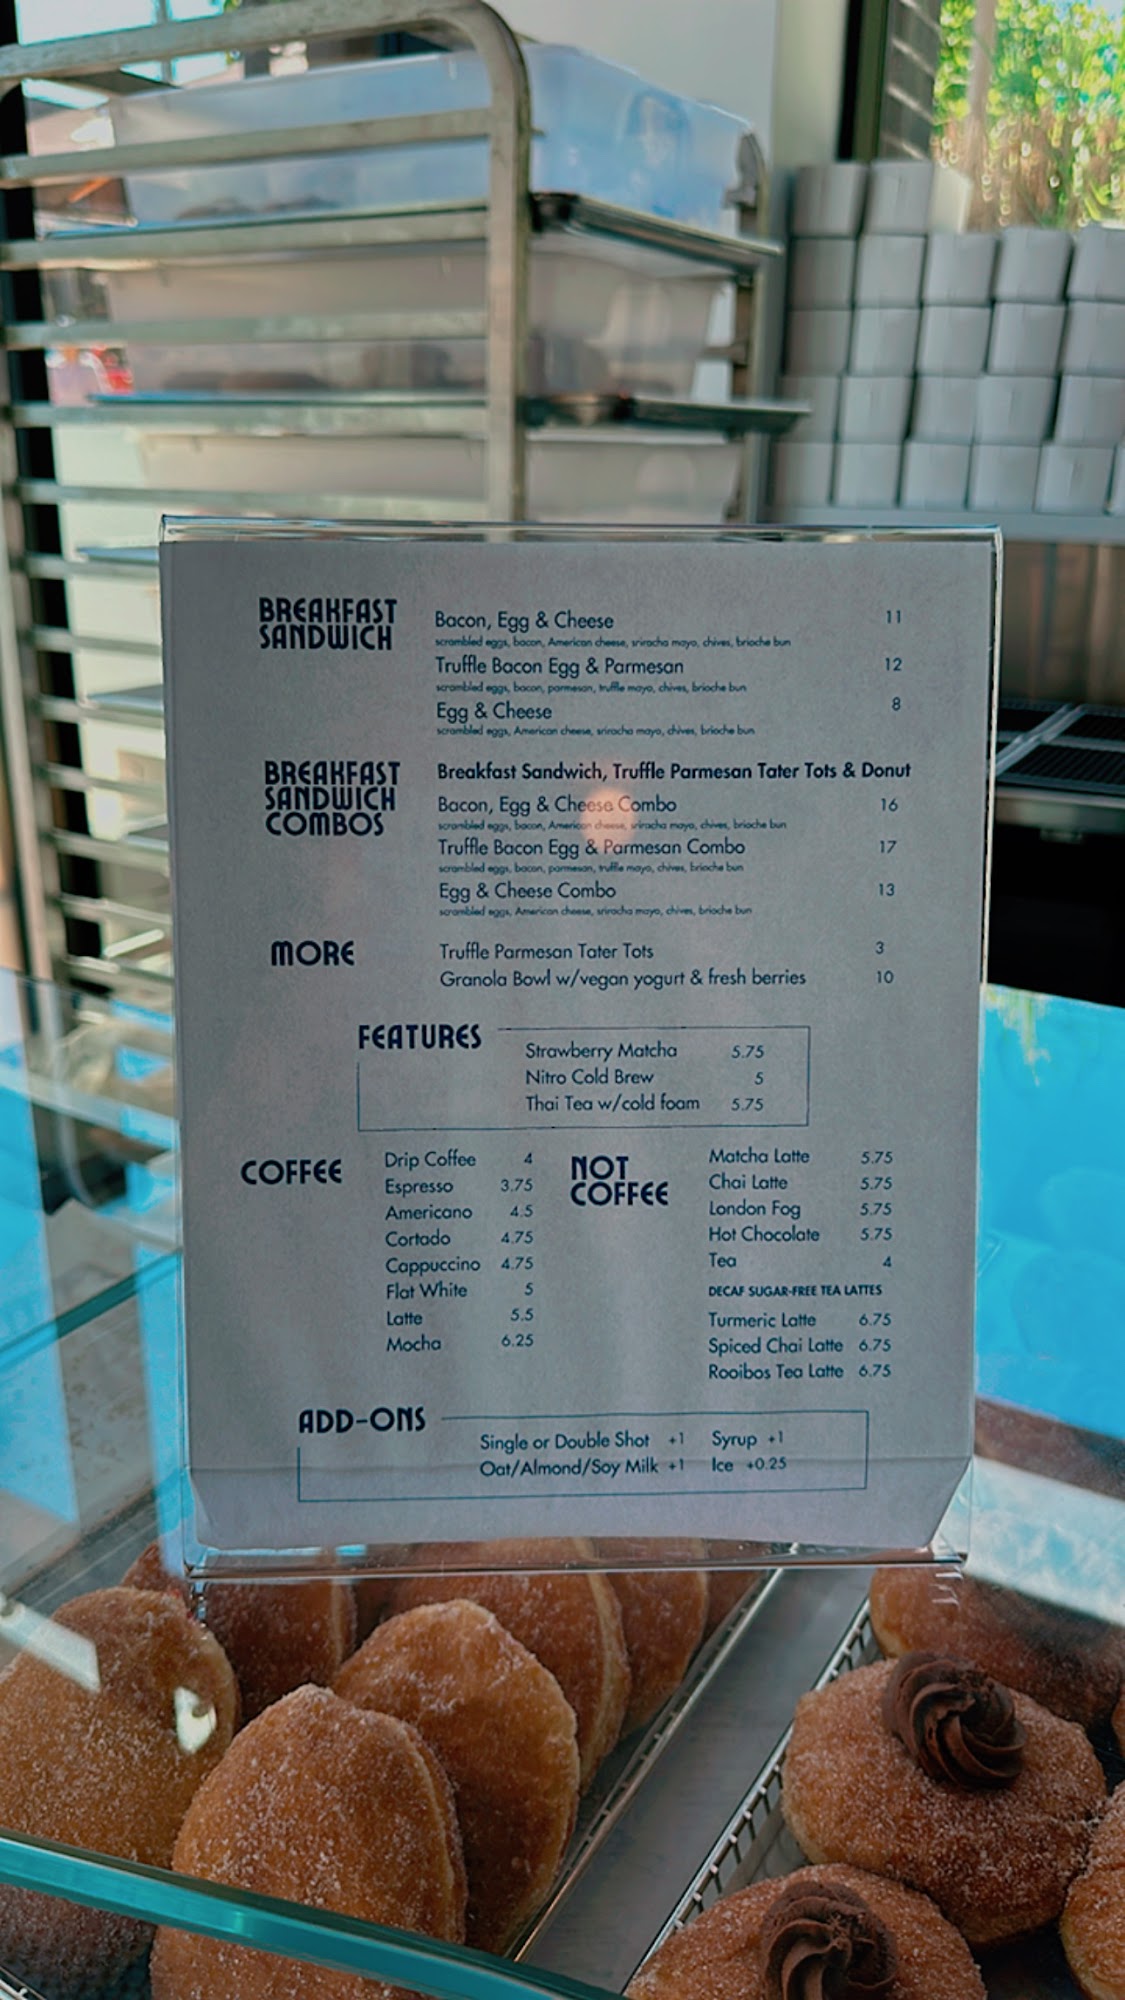 BREAKFAST
SANDWICH
Bacon, Egg & Cheese 11
scrambled eggs, bacon, American cheese, sriracha mayo, chives, brioche bun
Truffle Bacon Egg & Parmesan 12
scrambled eggs, bacon, parmesan, truffle mayo, chives, brioche bun
Egg & Cheese 8
scrambled eggs, American cheese, sriracha mayo, chives, brioche bun
BREAKFAST
SANDWICH
COMBOS
Breakfast Sandwich, Truffle Parmesan Tater Tots & Donut
Bacon, Egg & Cheese Combo 16
scrambled eggs, bacon, American cheese, sriracha mayo, chives, brioche bun
Truffle Bacon Egg & Parmesan Combo 17
scrambled eggs, bacon, parmesan, truffle mayo, chives, brioche bun
Egg & Cheese Combo 13
scrambled eggs, American cheese, sriracha mayo, chives, brioche bun
MORE
Truffle Parmesan Tater Tots 3
Granola Bowl w/vegan yogurt & fresh berries 10
FEATURES
Strawberry Matcha 5.75
Nitro Cold Brew 5
Thai Tea w/cold foam 5.75
COFFEE
Drip Coffee 4
Espresso 3.75
Americano 4.5
Cortado 4.75
Cappuccino 4.75
Flat White 5
Latte 5.5
Mocha 6.25
NOT
COFFEE
Matcha Latte 5.75
Chai Latte 5.75
London Fog 5.75
Hot Chocolate 5.75
Tea 4
DECAF SUGAR-FREE TEA LATTES
Turmeric Latte 6.75
Spiced Chai Latte 6.75
Rooibos Tea Latte 6.75
ADD-ONS
Single or Double Shot +1 Syrup +1
Oat/Almond/Soy Milk +1 Ice +0.25